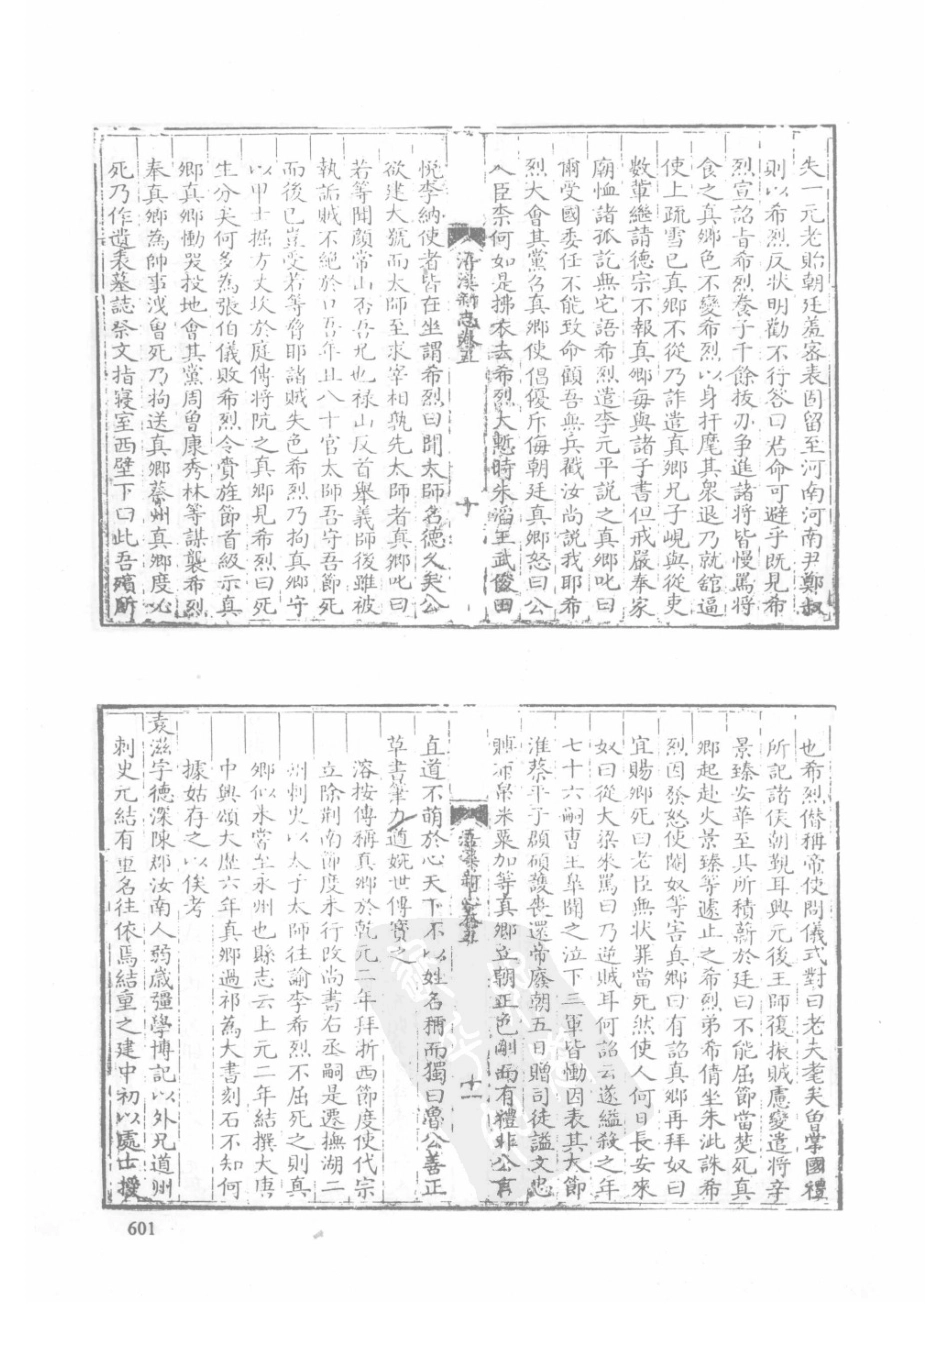 失一元老貽朝廷羞密表固留至河南河南尹鄭叔
則以希烈反狀明勸不行答曰君命可避乎既見希
烈宣詔旨希烈養子千餘拔刃爭進諸將皆慢罵將
食之真卿色不變希烈以身扞麾其衆退乃就舘逼
使上疏雪已真卿不從乃詐遣真卿兄子峴與從吏
數輩繼請德宗不報真卿每與諸子書但戒嚴奉家
廟恤諸孤訖無它語希烈遣李元平說之真卿叱曰
爾受國委任不能致命顧吾無兵戮汝尚說我耶希
烈大會其黨召真卿使倡優斥侮朝廷真卿怒曰公
人臣柰何如是拂衣去希烈大慙時朱滔王武俊田
浯溪新志卷五
十
悅李納使者皆在坐謂希烈曰聞太師名德久矣公
欲建大號而太師至求宰相孰先太師者真卿叱曰
若等聞顏常山否吾兄也祿山反首舉義師後雖被
執詬賊不絕於口吾年且八十官太師吾守吾節死
而後已豈受若等脅耶諸賊失色希烈乃拘真卿守
以甲士掘方丈坎於庭傳將阬之真卿見希烈曰死
生分矣何多為張伯儀敗希烈令賫旌節首級示真
卿真卿慟哭投地會其黨周曾康秀林等謀襲希烈
奉真卿為帥事洩曾死乃拘送真卿蔡州真卿度必
死乃作遺表墓誌祭文指寢室西壁下曰此吾殯所
也希烈僭稱帝使問儀式對曰老夫耄矣曾掌國禮
所記諸侯朝覲耳興元後王師復振賊慮變遣將辛
景臻安華至其所積薪於廷曰不能屈節當焚死真
卿起赴火景臻等遽止之希烈弟希倩坐朱泚誅希
烈因發怒使閹奴等害真卿曰有詔真卿再拜奴曰
宜賜卿死曰老臣無狀罪當死然使人何日長安來
奴曰從大梁來罵曰乃逆賊耳何詔云遂縊殺之年
七十六嗣曹王臯聞之泣下三軍皆慟因表其大節
淮蔡平子頵碩護喪還帝廢朝五日贈司徒謚文忠
賻布帛米粟加等真卿立朝正色剛而有禮非公言
浯溪新志卷五
十一
直道不萌於心天下不以姓名稱而獨曰魯公善正
草書筆力遒婉世傳寶之
溶按傳稱真卿於乾元二年拜浙西節度使代宗
立除荆南節度未行改尚書右丞嗣是遷撫湖二
州刺史以太子太師往諭李希烈不屈死之則真
卿似未嘗至永州也縣志云上元二年結撰大唐
中興頌大厯六年真卿過祁為大書刻石不知何
據姑存之以俟考
袁滋字德深陳郡汝南人弱歲彊學博記以外兄道州
刺史元結有重名往依焉結重之建中初以處士授
601